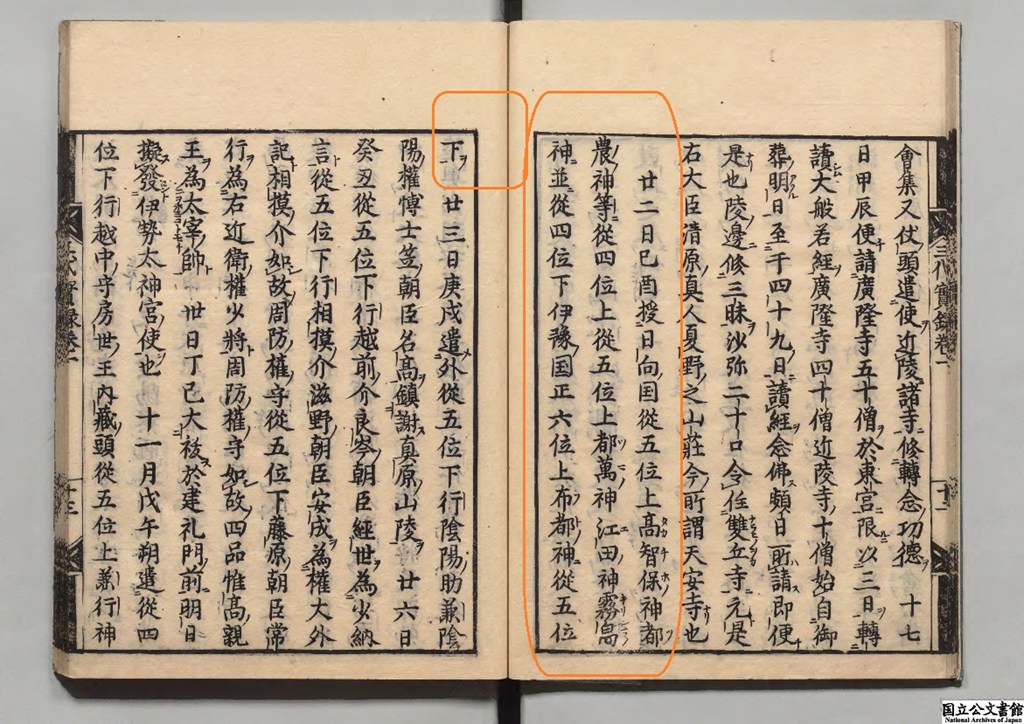 會集又仗頭遣使近陵諸寺修轉念功德 十七
日甲辰便請廣隆寺五十僧於東宮限以三日轉
讀大般若經廣隆寺四十僧近陵寺十僧始自御
葬明日至于四十九日讀經念佛頻日所請即便
是也陵邊修三昧沙弥二十口令住雙丘寺元是
右大臣清原真人夏野之山莊今所謂天安寺也
廿二日己酉授日向国從五位上高智保神都
農神等從四位上從五位上都萬神江田神霧嶋
神並從四位下伊豫国正六位上布都神從五位
下 廿三日庚戌遣外從五位下行陰陽助兼陰
陽權博士笠朝臣名高鎮謝真原山陵 廿六日
癸丑從五位下行越前介良岑朝臣經世為少納
言從五位下行相摸介滋野朝臣安成為權大外
記相摸介如故周防權守從五位下藤原朝臣常
行為右近衛權少將周防權守如故四品惟高親
王為太宰帥 卅日丁巳大秡於建礼門前明日
擬發伊勢太神宮使也 十一月戊午朔遣從四
位下行越中守房世王內藏頭從五位上兼行神
三代實録卷一
十二
十三
国立公文書館
National Archives of Japan